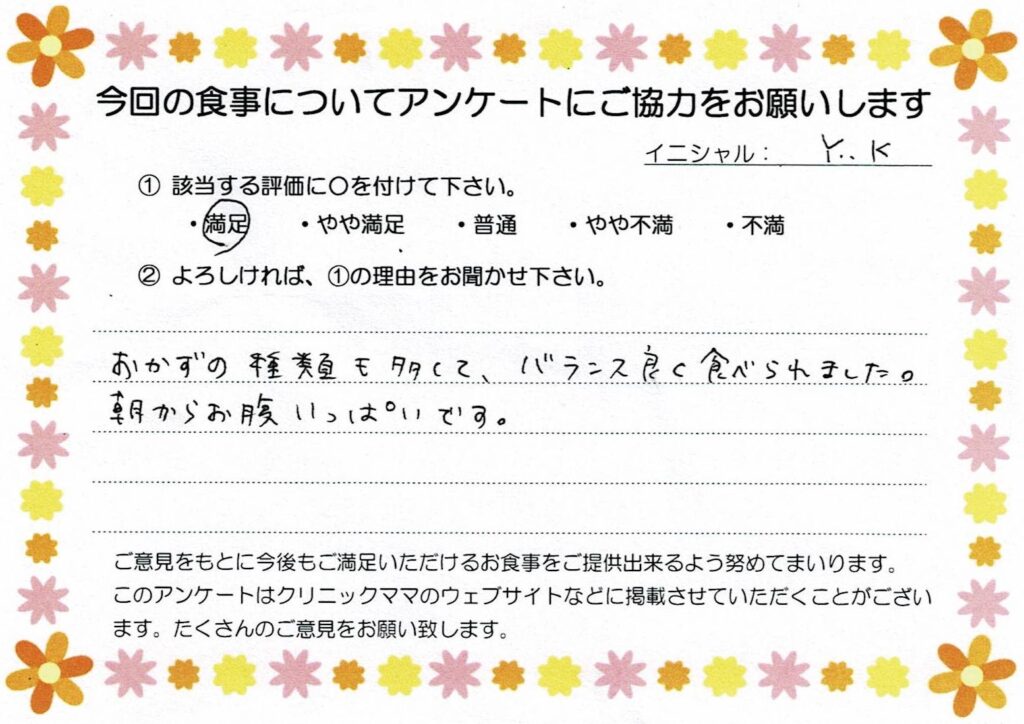 今回の食事についてアンケートにご協力をお願いします
イニシャル： Y..K
① 該当する評価に〇を付けて下さい。
・満足 ・やや満足 ・普通 ・やや不満 ・不満
② よろしければ、①の理由をお聞かせ下さい。
おかずの種類も多くて、バランス良く食べられました。
朝からお腹いっぱいです。
ご意見をもとに今後もご満足いただけるお食事をご提供出来るよう努めてまいります。
このアンケートはクリニックママのウェブサイトなどに掲載させていただくことがござい
ます。たくさんのご意見をお願い致します。